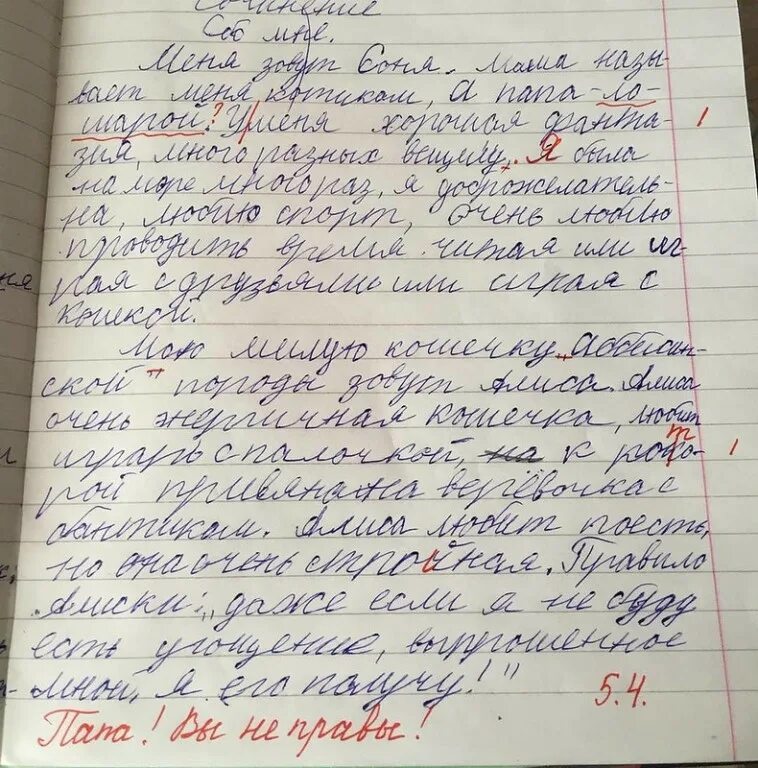 Сочинение
Соб мне.
Меня зовут Соня. Мама назы-
вает меня котиком, а папа-ло-
шарой.? У меня хорошая фанта- 1
зия, много разных вещему. Я была
на море много раз, я доброжелатель-
на, люблю спорт, очень люблю
проводить время читая или иг-
рая с друзьями или играя с
кошкой.
Мою милую кошечку „аббесин-
ской" породы зовут Алиса. Алиса
очень энергичная кошечка, любит
играть с палочкой, к кото- 1
рой привязана верёвочка с
бантиком. Алиса любит поесть,
но она очень стройная. Правило
Алиски: „даже если я не буду
есть угощение, выпрошенное
мной, я его получу!"
5.4.
Папа! Вы не правы!